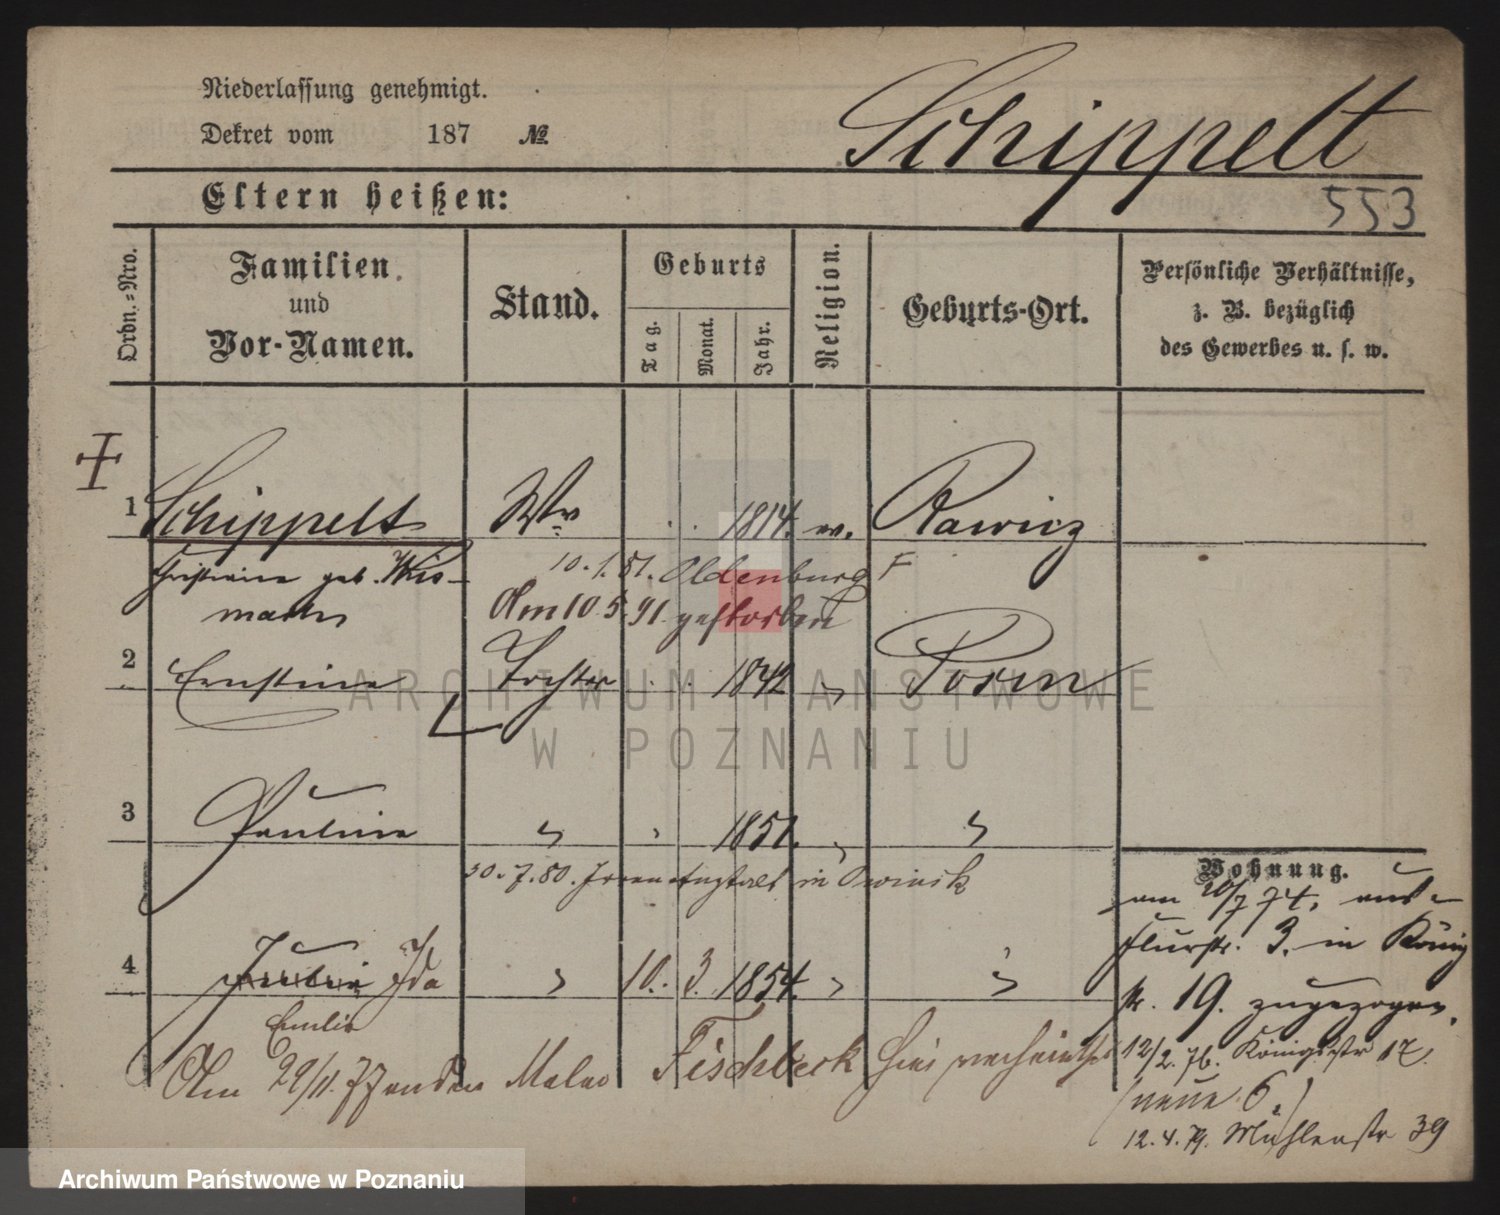 Niederlassung genehmigt.
Dekret vom 187 №
Schippelt
Eltern heißen:
553
Ordn.=Nro.
Familien
und
Vor-Namen.
Stand.
Geburts
Tag.
Monat.
Jahr.
Religion.
Geburts-Ort.
Persönliche Verhältnisse,
z. B. bezüglich
des Gewerbes u. s. w.
1 Schippelt Ww 1814. ev. Rawicz
Christine geb.
10. 1. 81. Oldenburg
Am 10.5.91. gestorben
2 Ernstine Tochter 1842 " Posen
ARCHIWUM PAŃSTWOWE
W POZNANIU
3 Pauline " 1851. " "
30.7.80. Irrenanstalt in Owinsk
Wohnung.
am 20/7 74. aus
Flurstr. 3. in König
str. 19. zugezogen.
4 Ida " 10. 3. 1854. " "
Emilie
Am 29/11. 77 an den Maler Fischbeck hier verheirathet
12/2. 76. Königsstr 17.
(neue 6.)
12.4.79. Mühlenstr 39
Archiwum Państwowe w Poznaniu